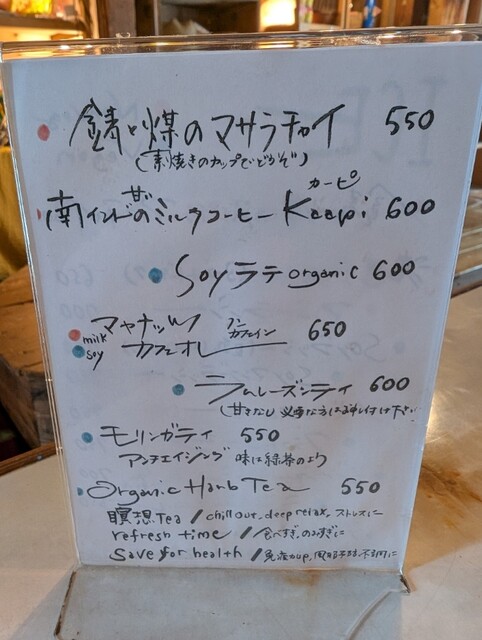 錆と煤のマサラチャイ 550
(素焼きのカップでどうぞ)
南インドの甘いミルクコーヒー Keepi カーピ 600
Soyラテ organic 600
milk soy マヤナッツカフェオレ ノンカフェイン 650
ラムレーズンティ 600
(甘さなし 必要な方はお申し付け下さい
モリンガティ 550
アンチエイジング 味は緑茶のよう
Organic Harb Tea 550
瞑想Tea / chill out, deep relax, ストレスに
refresh time / 食べすぎ、のみすぎに
Save for health / 免疫力up,